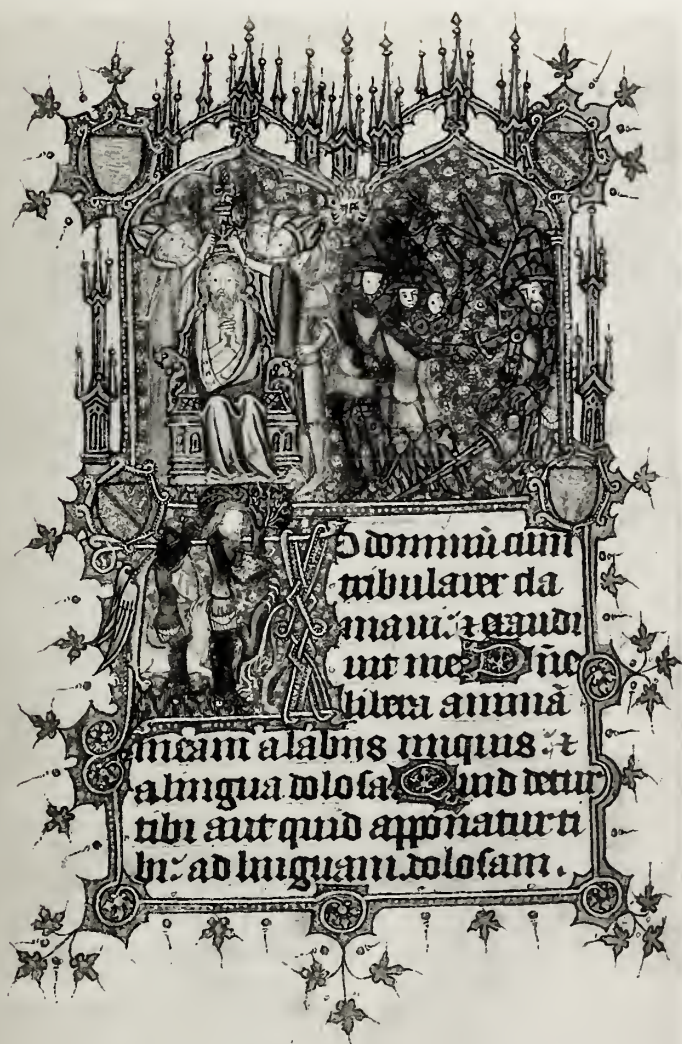 AD dominū cum
tribularer cla
maui: ⁊ exaudi
uit me Dñe
libera animā
meam a labiis iniquis : ⁊
a lingua dolosa Quid detur
tibi aut quid apponatur ti
bi: ad linguam dolosam.